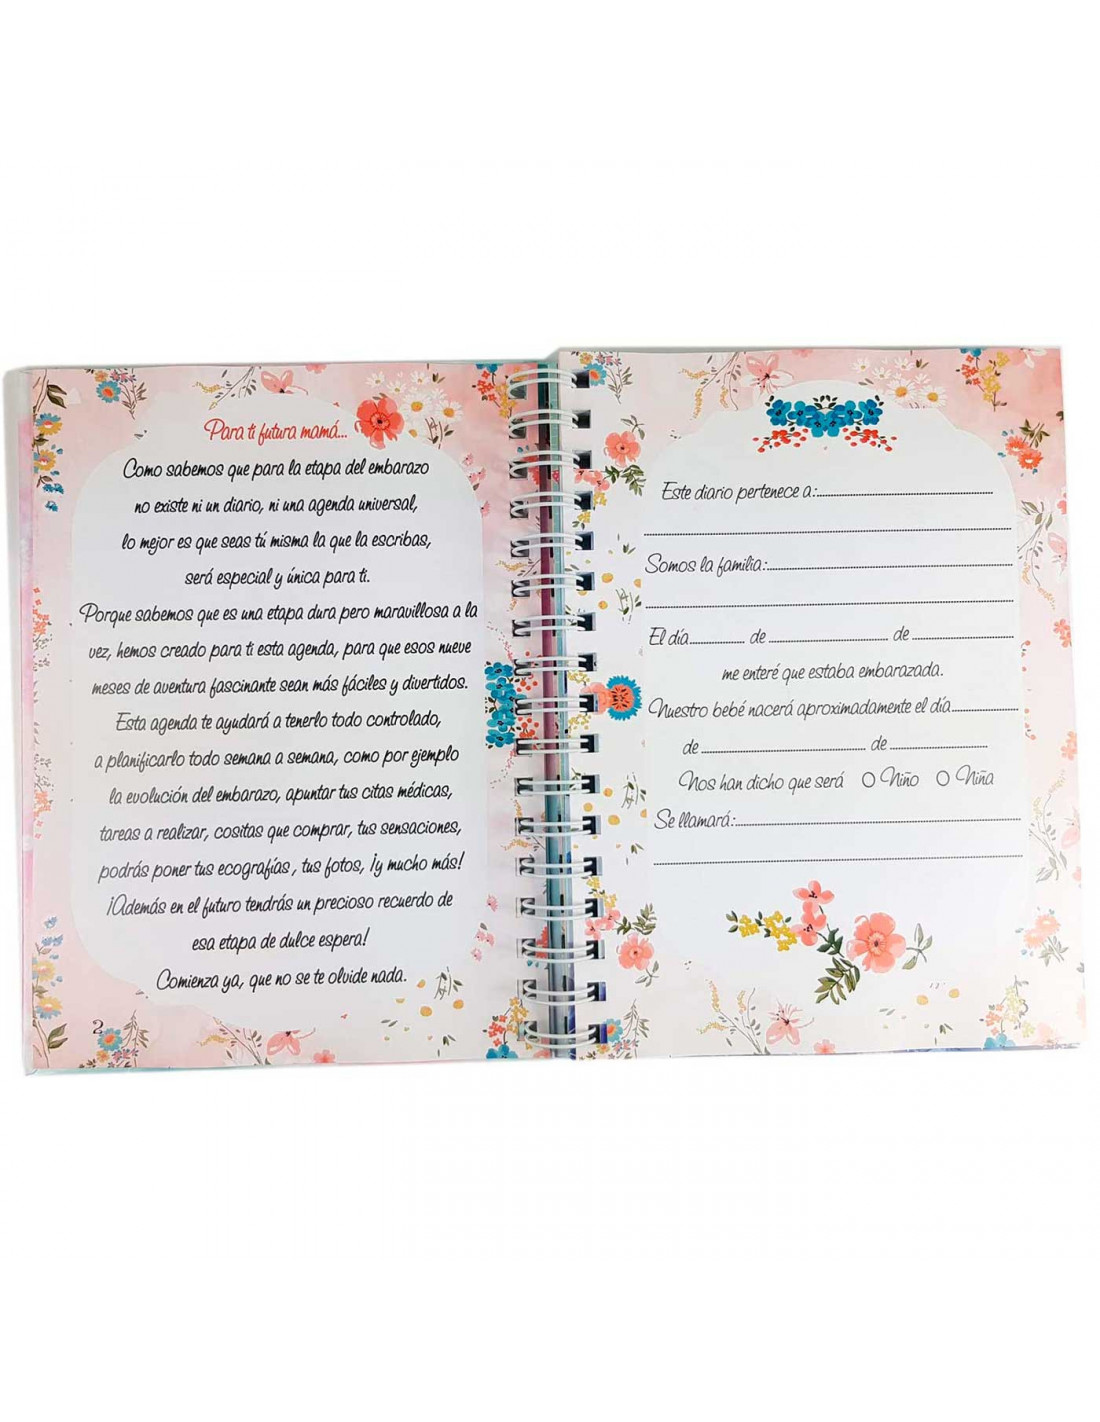 Para ti futura mamá...
Como sabemos que para la etapa del embarazo
no existe ni un diario, ni una agenda universal,
lo mejor es que seas tú misma la que la escribas,
será especial y única para ti.
Porque sabemos que es una etapa dura pero maravillosa a la
vez, hemos creado para ti esta agenda, para que esos nueve
meses de aventura fascinante sean más fáciles y divertidos.
Esta agenda te ayudará a tenerlo todo controlado,
a planificarlo todo semana a semana, como por ejemplo
la evolución del embarazo, apuntar tus citas médicas,
tareas a realizar, cositas que comprar, tus sensaciones,
podrás poner tus ecografías , tus fotos, ¡y mucho más!
¡Además en el futuro tendrás un precioso recuerdo de
esa etapa de dulce espera!
Comienza ya, que no se te olvide nada.
2
Este diario pertenece a:
Somos la familia:
El día de de
me enteré que estaba embarazada.
Nuestro bebé nacerá aproximadamente el día
de de
Nos han dicho que será Niño Niña
Se llamará: